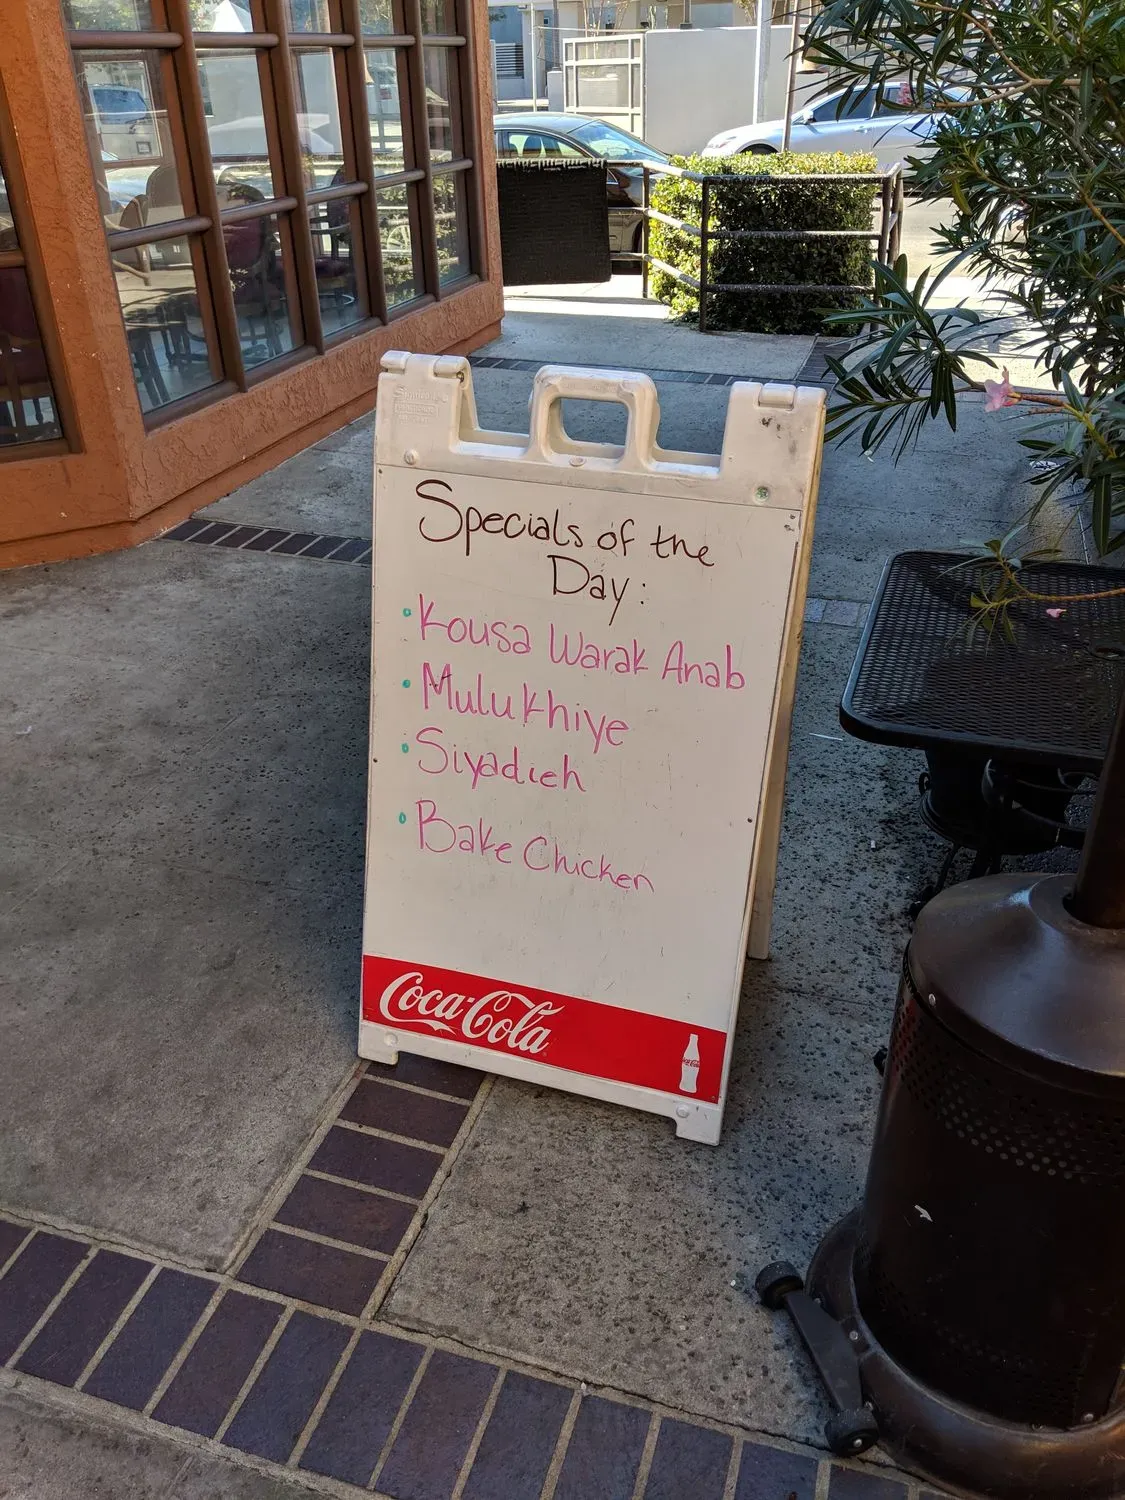 Specials of the
Day:
• Kousa Warak Anab
• Mulukhiye
• Siyadieh
• Bake Chicken
Coca-Cola